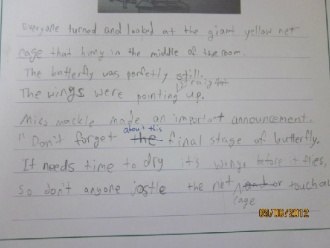 Everyone turned and looked at the giant yellow net
cage that hung in the middle of the room.
The butterfly was perfectly still.
The wings were straight pointing up.
Miss mackle made an important announcement.
"Don't forget about this the final stage of butterfly.
It needs time to dry it's wings before it flies,
so don't anyone jostle the net cage or touch